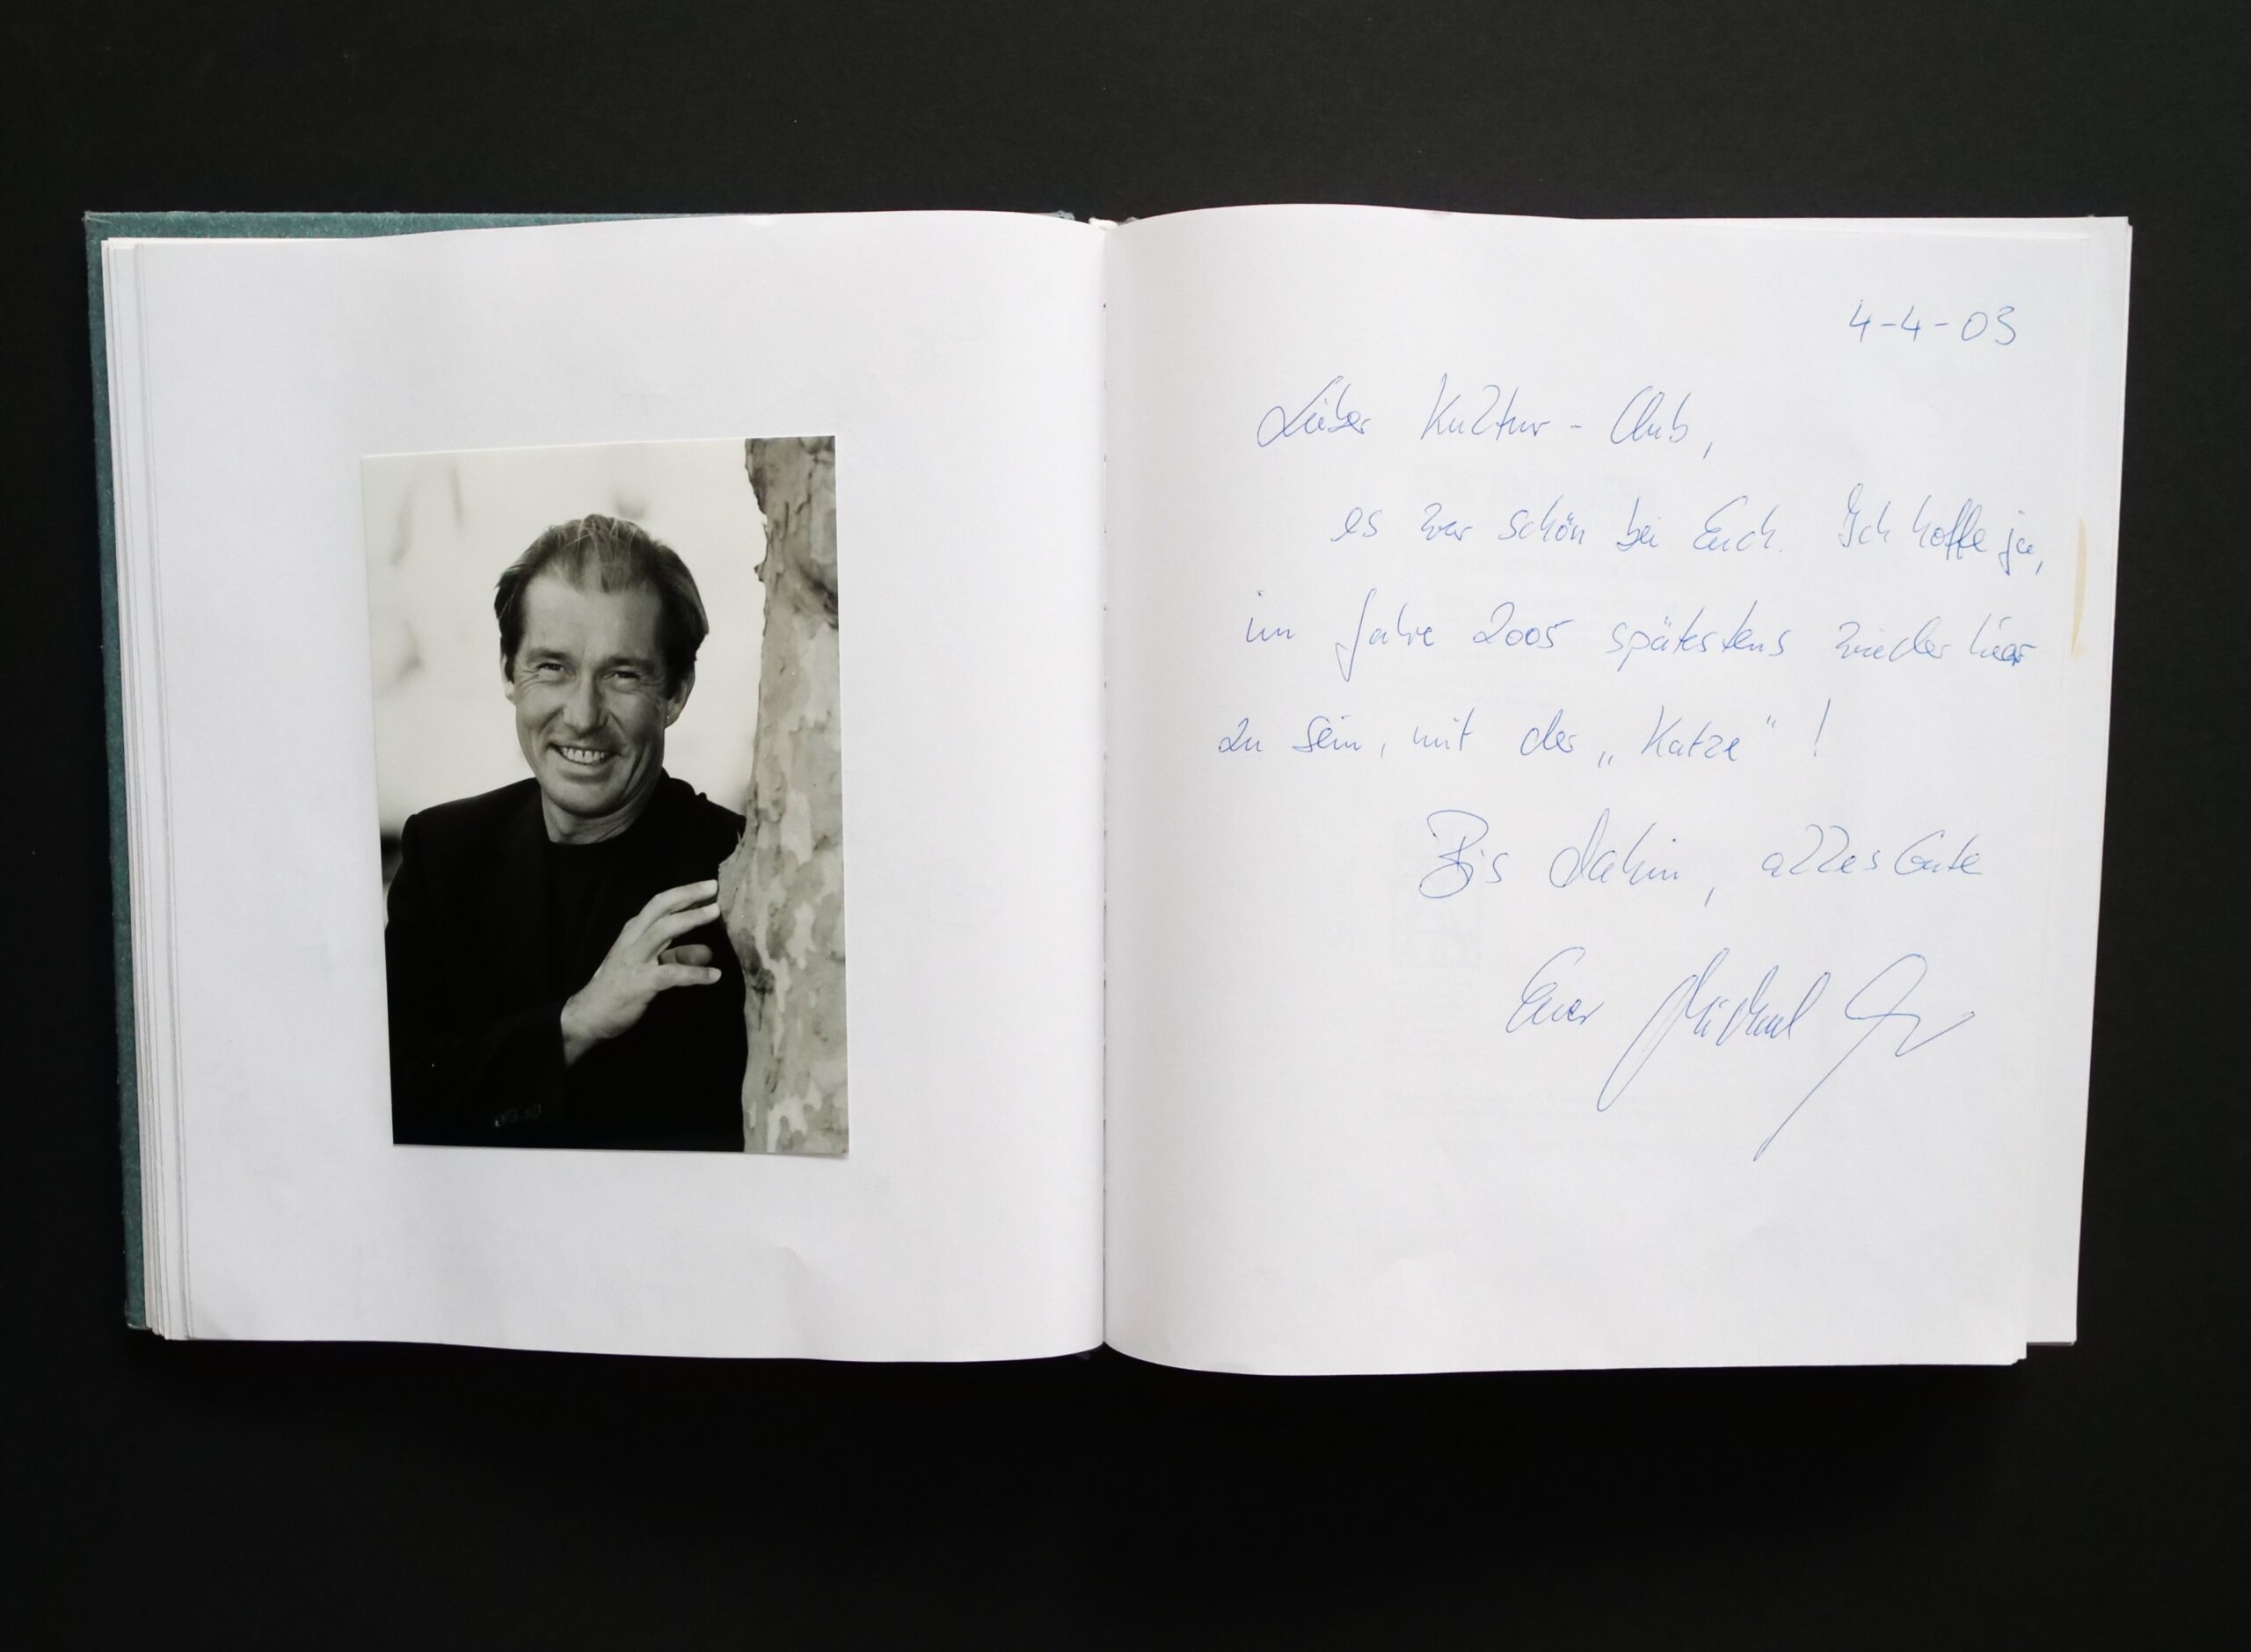 4-4-03
Lieber Kultur-Club,
es war schön bei Euch. Ich hoffe ja,
im Jahre 2005 spätestens wieder hier
zu sein, mit der „Katze“!
Bis dahin, alles Gute
Euer Michael